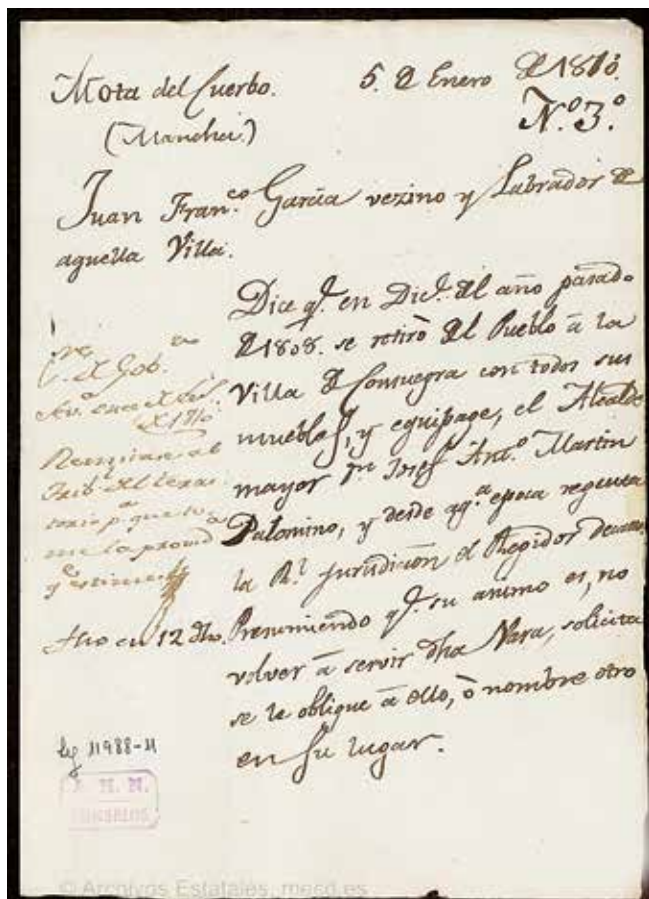 Mota del Cuerbo. 5. de Enero de 1810.
(Mancha.) N.º 3.º
Juan Fran.co García vezino y Labrador de
aquella Villa.
Dice q.e en Dic.e del año pasado
de 1808. se retirò del Pueblo â la
Villa de Consuegra con todos sus
muebles, y equipage, el Alcalde
mayor D.n Josef Ant.º Martin
Palomino, y desde aq.a epoca regenta
la R.l jurisdicion el Regidor decano.
Presumiendo q.e su animo es, no
volver â servir dha Vara, solicita
se le obligue â ello, ô nombre otro
en su lugar.
Gob.no
de 1810
Remitase al
Trib.l del terri
torio p.a que to
me la provid.a
q.e estime
fho en 12 dho.
leg 11988-11
A. H. N.
CONSEJOS
© Archivos Estatales, mecd.es